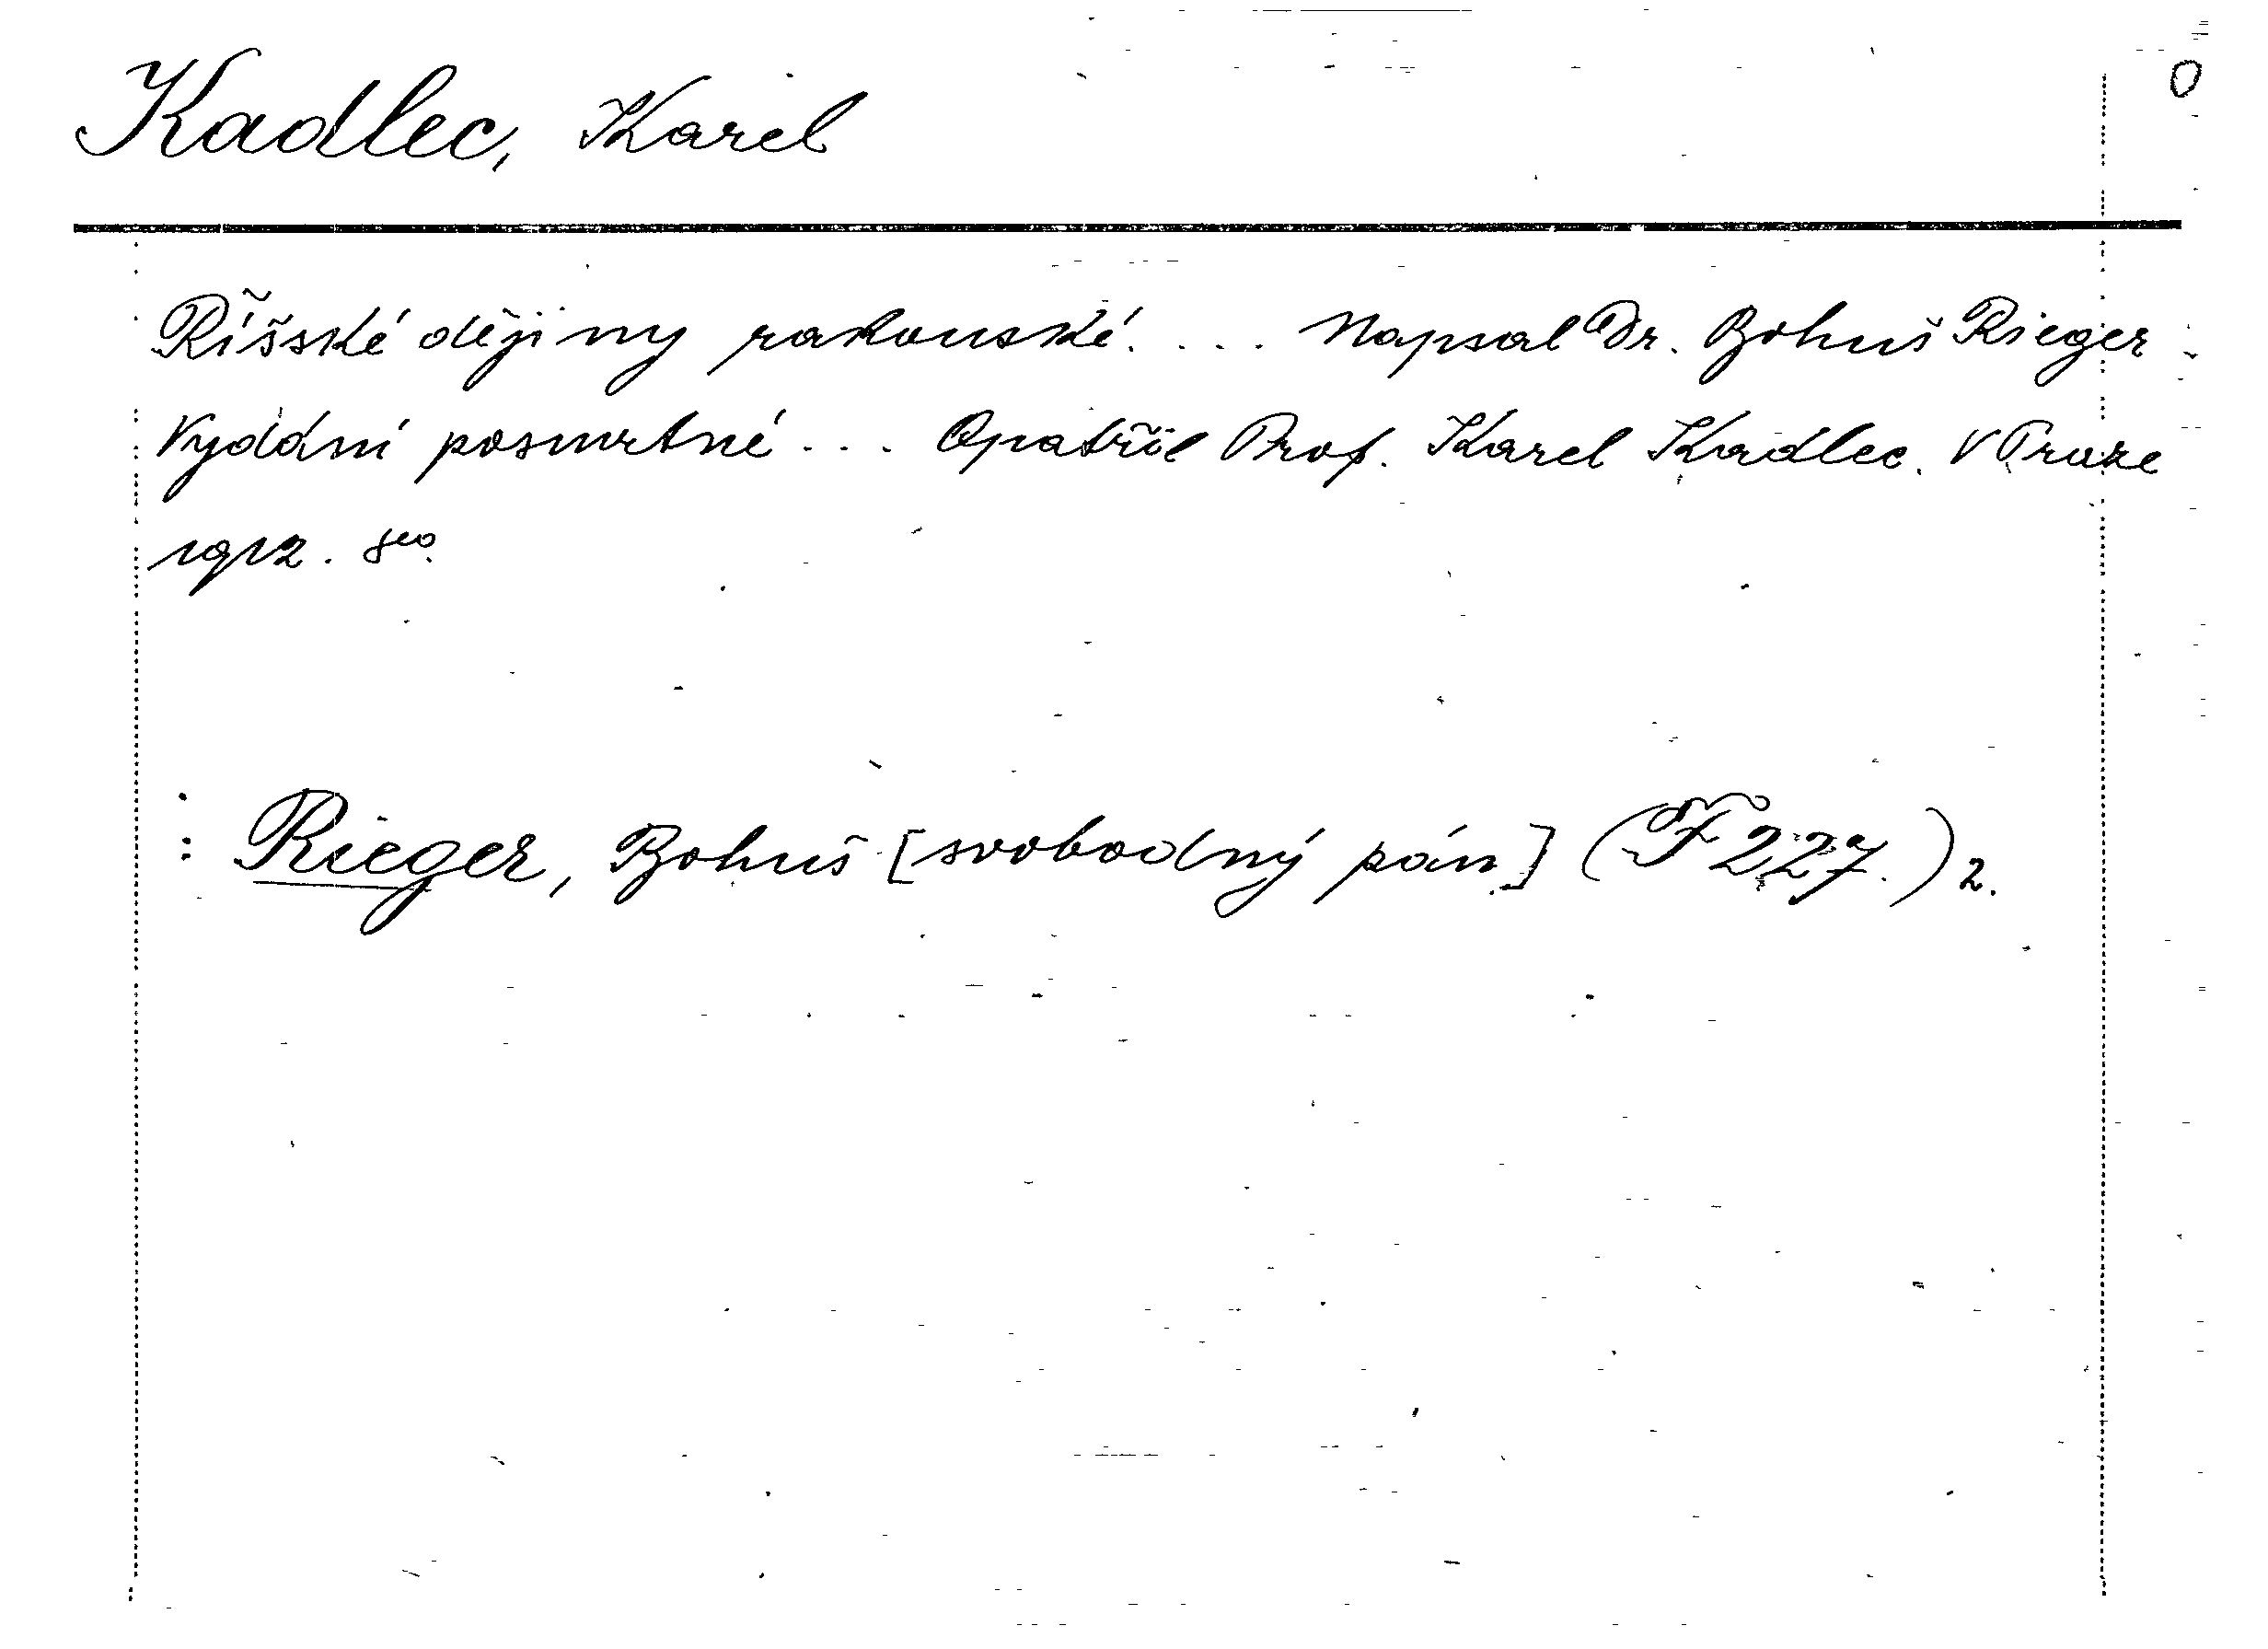 0
Kadlec, Karel
Říšské dějiny rakouské. ... Napsal Dr. Bohuš Rieger.
Vydání posmrtné ... Opatřil Prof. Karel Kadlec. V Praze
1912. 8vo.
: Rieger, Bohuš [svobodný pán.] (F 227.) 2.